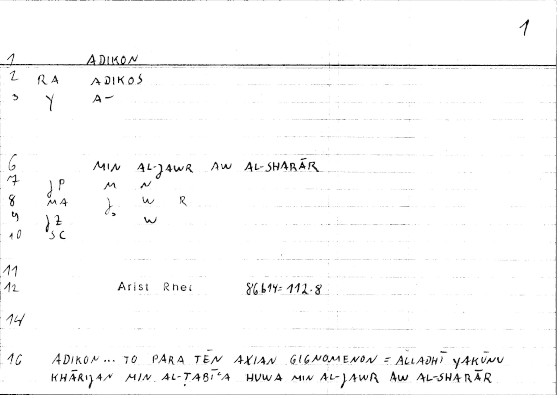 1
1 ADIKON
2 RA ADIKOS
3 Y A-
6 MIN AL-JAWR AW AL-SHARĀR
7 JP M N
8 MA J W R
9 JZ W
10 SC
11
12 Arist Rhet 86b14=112.8
14
16 ADIKON... TO PARA TĒN AXIAN GIGNOMENON = ALLADHĪ YAKŪNU
KHĀRIJAN MIN AL-ṬABĪʿA HUWA MIN AL-JAWR AW AL-SHARĀR